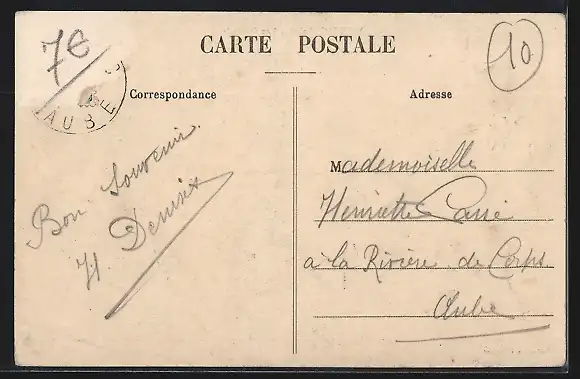 7€
10
CARTE POSTALE
AUBE
Correspondance
Adresse
Bon Souvenir.
H.
Mademoiselle
Henriette
à la Rivière de Corps
Aube